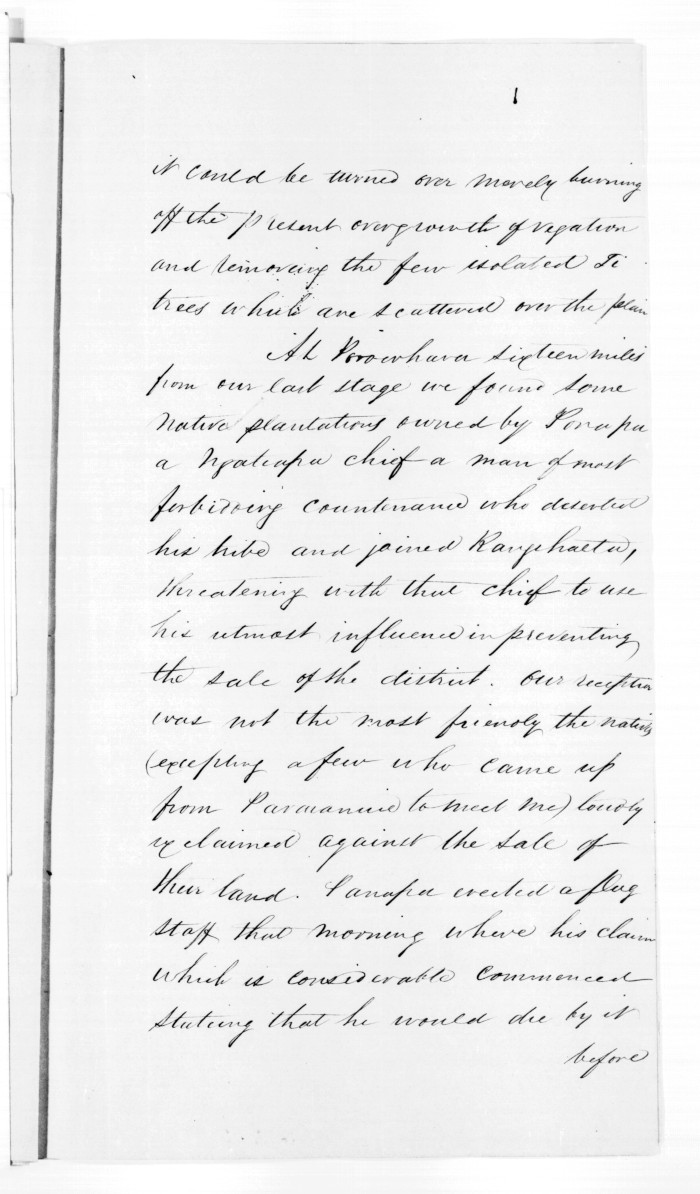 it could be turned over merely burning
off the present overgrowth of vegation
and removing the few isolated Ti
trees which are scattered over the plain
At Porowhara sixteen miles
from our last stage we found some
Native plantations owned by Ponapa
a Ngateapa chief a man of most
forbidding countenance who deserted
his tribe and joined Rangehaeta,
threatening with that chief to use
his utmost influence in preventing
the sale of the district. Our reception
was not the most friendly the natives
(excepting a few who came up
from to meet me) loudly
exclaimed against the sale of
their land. Panapa erected a flag
staff that morning where his claim
which is considerable commenced
stating that he would die by it
before